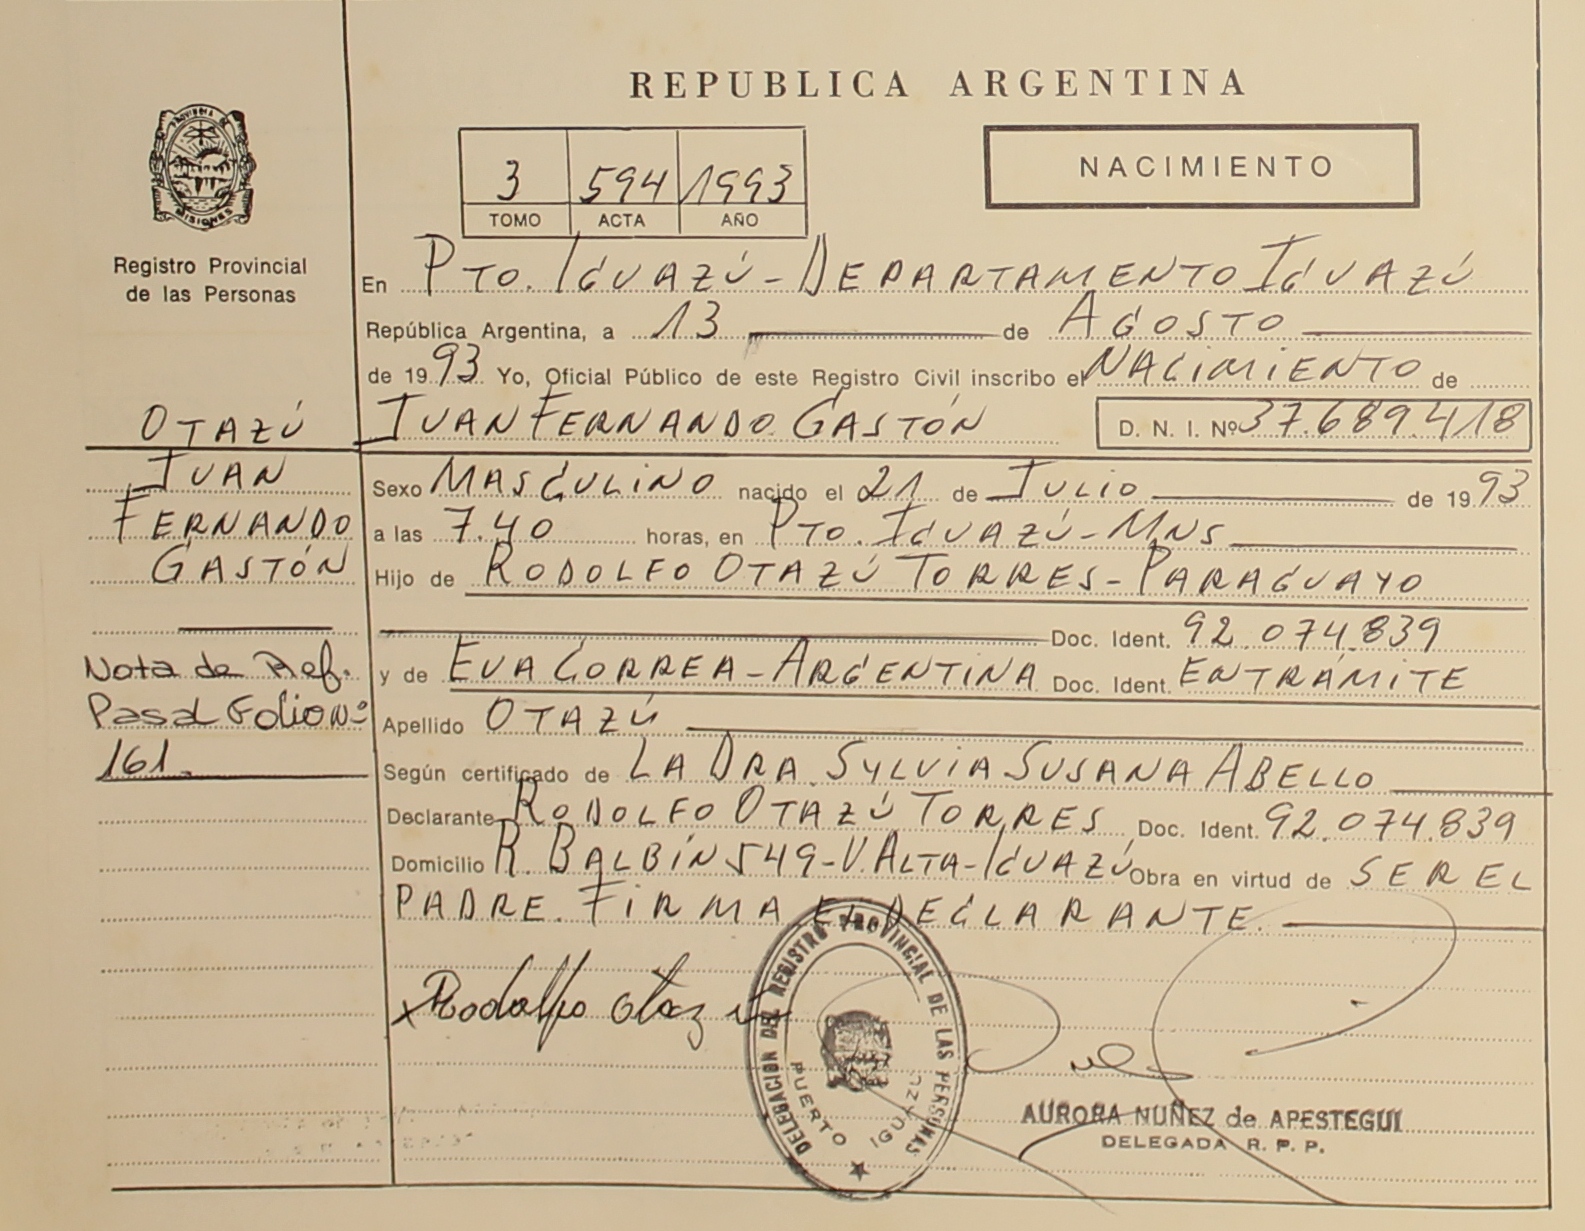 REPUBLICA ARGENTINA
PROVINCIA DE
MISIONES
3 594 1993
TOMO ACTA AÑO
NACIMIENTO
Registro Provincial
de las Personas
En PTO. IGUAZÚ - DEPARTAMENTO IGUAZÚ
República Argentina, a 13 de AGOSTO
de 1993 Yo, Oficial Público de este Registro Civil inscribo el NACIMIENTO de
JUAN FERNANDO GASTÓN D. N. I. Nº 37.689.418
OTAZÚ
JUAN
FERNANDO
GASTÓN
Nota de Ref.
Pasa al Folio Nº
161.
Sexo MASCULINO nacido el 21 de JULIO de 1993
a las 7.40 horas, en PTO. IGUAZÚ - MNS
Hijo de RODOLFO OTAZÚ TORRES - PARAGUAYO
Doc. Ident. 92.074.839
y de EVA CORREA - ARGENTINA Doc. Ident. EN TRÁMITE
Apellido OTAZÚ
Según certificado de LA DRA. SYLVIA SUSANA ABELLO
Declarante RODOLFO OTAZÚ TORRES Doc. Ident. 92.074.839
Domicilio R. BALBÍN 549 - V. ALTA - IGUAZÚ Obra en virtud de SER EL
PADRE. FIRMA EL DECLARANTE.
x Rodolfo Otazú
DELEGACION DEL REGISTRO PROVINCIAL DE LAS PERSONAS
PUERTO IGUAZU
AURORA NUÑEZ de APESTEGUI
DELEGADA R. P. P.